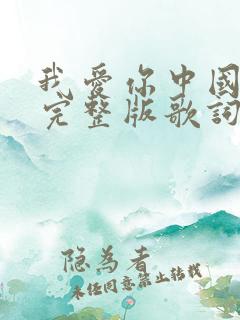 我爱你中國
完整版歌詞
隐为者
未任同意禁止转载